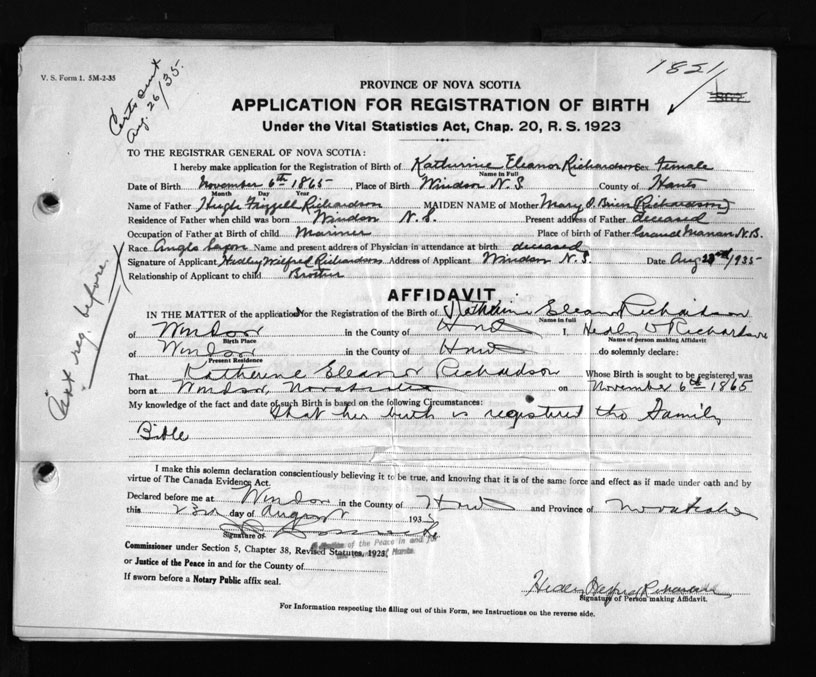 V. S. Form 1. 5M-2-35
Cert sent
Aug. 26/35.
1851
PROVINCE OF NOVA SCOTIA
APPLICATION FOR REGISTRATION OF BIRTH
Under the Vital Statistics Act, Chap. 20, R. S. 1923
TO THE REGISTRAR GENERAL OF NOVA SCOTIA:
I hereby make application for the Registration of Birth of Katherine Eleanor Richardson Sex female
Name in Full
Date of Birth November 6th 1865, Place of Birth Windsor N.S County of Hants
Month Day Year
Name of Father Hugh Frizzell Richardson MAIDEN NAME of Mother Mary O.Brien (Richardson)
Residence of Father when child was born Windsor N. S. Present address of Father deceased
Occupation of Father at Birth of child Mariner Place of birth of Father Grand Manan N.B.
Race Anglo Saxon Name and present address of Physician in attendance at birth deceased
Signature of Applicant Hedley Wilfred Richardson Address of Applicant Windsor N. S. Date Aug 23rd/1935
Relationship of Applicant to child Brother
Cert reg. before.
AFFIDAVIT
IN THE MATTER of the application for the Registration of the Birth of Katherine Eleanor Richardson
Name in full
of Windsor in the County of Hants I, Hedley W Richardson
Birth Place Name of person making Affidavit
of Windsor in the County of Hants do solemnly declare:
Present Residence
That Katherine Eleanor Richardson Whose Birth is sought to be registered was
born at Windsor, Nova Scotia on November 6th 1865
My knowledge of the fact and date of such Birth is based on the following Circumstances:
That her birth is registered the Family
Bible
I make this solemn declaration conscientiously believing it to be true, and knowing that it is of the same force and effect as if made under oath and by
virtue of The Canada Evidence Act.
Declared before me at Windsor in the County of Hants and Province of Nova Scotia
this 23rd day of August 1935
Signature of
Commissioner under Section 5, Chapter 38, Revised Statutes, 1923,
Justice of the Peace in and for
Hants
or Justice of the Peace in and for the County of
If sworn before a Notary Public affix seal.
Hedley Wilfred Richardson
Signature of Person making Affidavit.
For Information respecting the filling out of this Form, see Instructions on the reverse side.